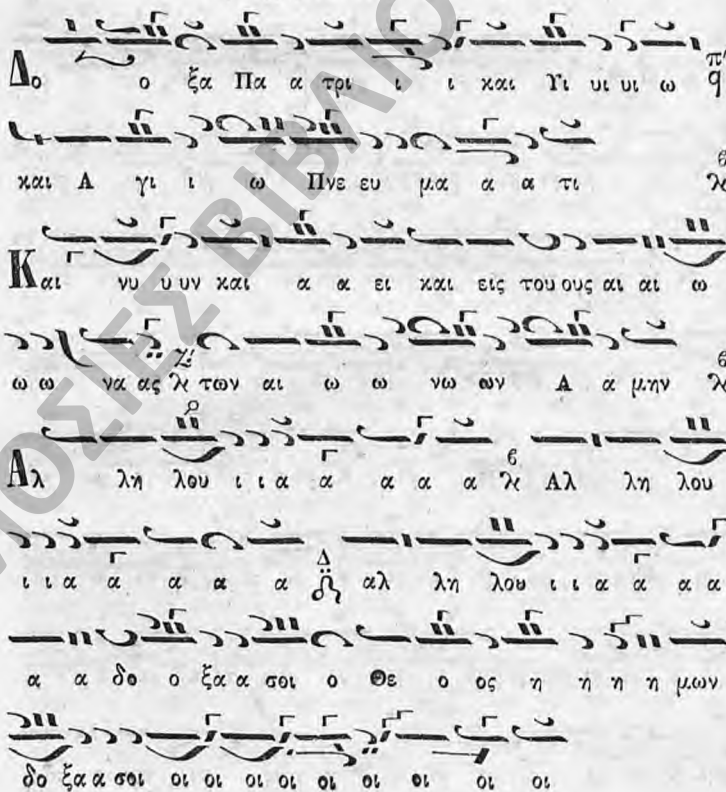 Δο ο ξα Πα α τρι ι ι και Υι υι υι ω
και Α γι ι ω Πνε ευ μα α α τι
Και νυ υ υν και α α ει και εις του ους αι αι ω
ω ω να ας των αι ω ω νω ων Α α μην
Αλ λη λου ι ι α α α α α Αλ λη λου
ι ι α α α α α αλ λη λου ι ι α α α α
α α δο ο ξα α σοι ο Θε ο ος η ή η η μων
δο ξα α σοι οι οι οι οι οι οι οι οι οι